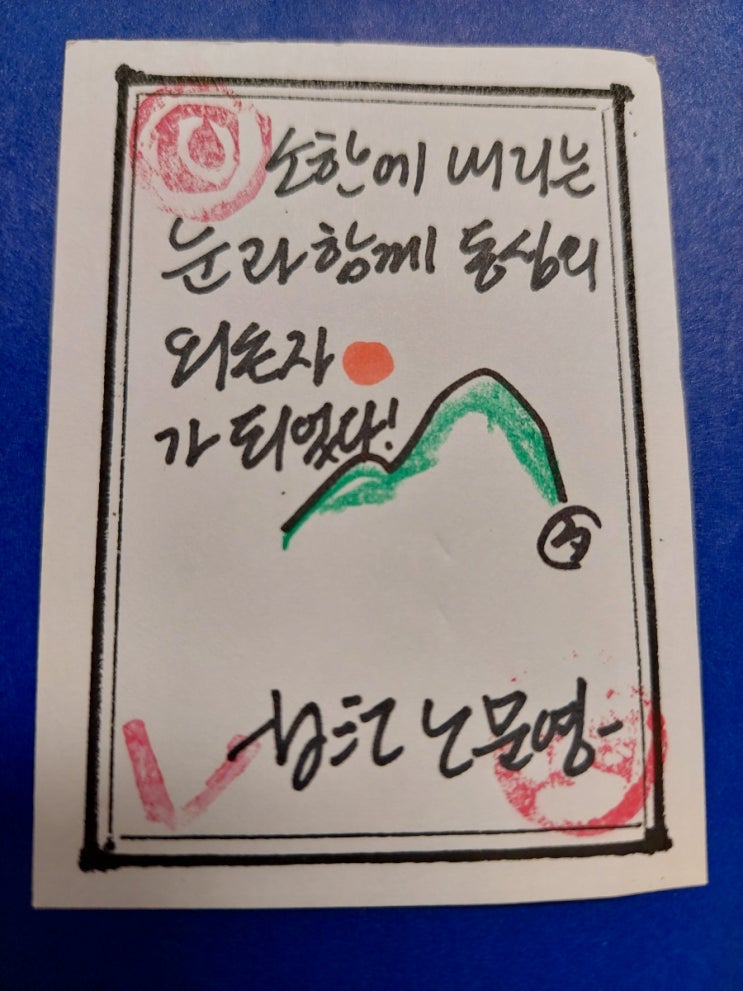 소한에 내리는
눈과 함께 동심의
외손자
가 되었다!
문영